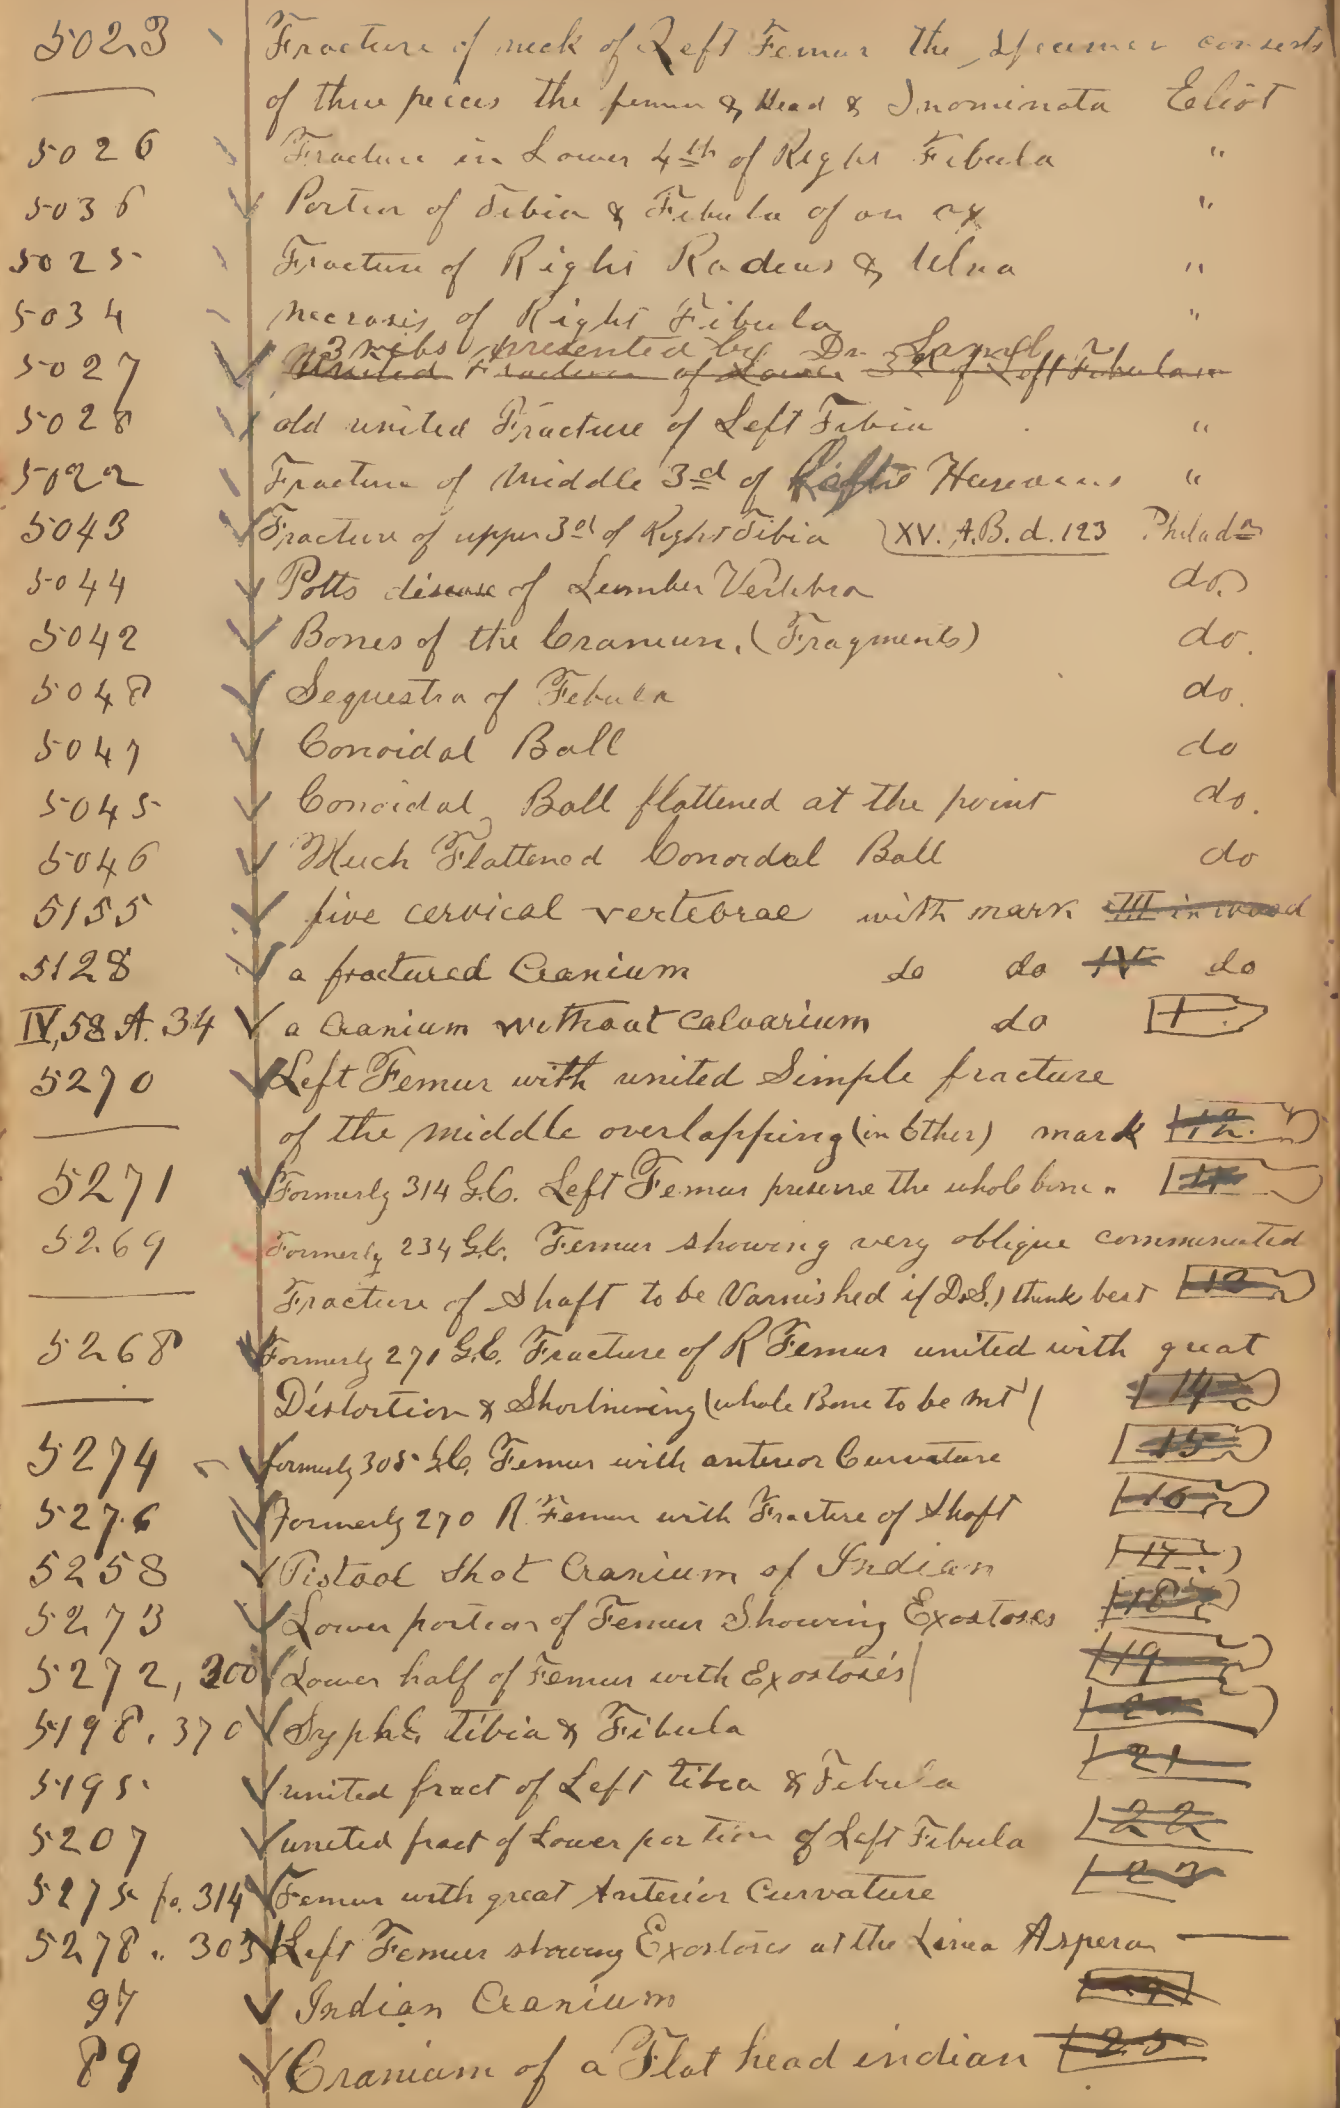 5023 Fracture of neck of Left Femur the specimen consists
of three peices the femur & Head & Inominata Eliot
5026 Fracture in Lower 4th of Right Fibula "
5036 Portion of Tibia & Fibula of an ox "
5025 Fracture of Right Radius & Ulna "
5034 Necrosis of Right Fibula "
3 ribs presented by Dr.
5027 United Fracture of Lower 3d of Left Fibula "
5028 old united Fracture of Left Tibia "
5022 Fracture of Middle 3d of Humerus "
5043 Fracture of upper 3d of Right Tibia XV. A.B. d. 123 Philada
5044 Potts disease of Lumber Vertebra do.
5042 Bones of the Cranium. (Fragments) do.
5048 Sequestra of Febula do.
5047 Conoidal Ball do
5045 Conoidal Ball flattened at the point do.
5046 Much Flattened Conoidal Ball do
5155 five cervical vertebrae with mark III in wood
5128 a fractured Cranium do do IV do
IV, 58 A. 34 a Cranium without calvarium do +
5270 Left Femur with united Simple fracture
of the middle overlapping (in Ether) mark 12.
5271 Formerly 314 G.C. Left Femur preserve the whole bone "
5269 Formerly 234 G.C. Femur showing very oblique communited
Fracture of Shaft to be Varnished if D.S.) think best
5268 Formerly 271 G.C. Fracture of R Femur united with great
Distortion & Shortnining (whole Bone to be mt) 14
5274 formerly 305 G.C. Femur with anterior Curvature 15
5276 Formerly 270 R Femur with Fracture of Shaft 16
5258 Pistool Shot Cranium of Indian 17.
5273 Lower portion of Femur Showing Exostoses 18
5272, 300 Lower half of Femur with Exostosés 19
5198. 370 Syphc. tibia & Fibula 20
5195 united fract of Left tibia & Febula 21
5207 united fract of Lower portion of Left Fibula 22
5275 fo. 314 Femur with great Anterior Curvature 23
5278.. 303 Left Femur showing Exostosis at the Linea Aspera
97 Indian Cranium
89 Cranium of a Flat head indian 25